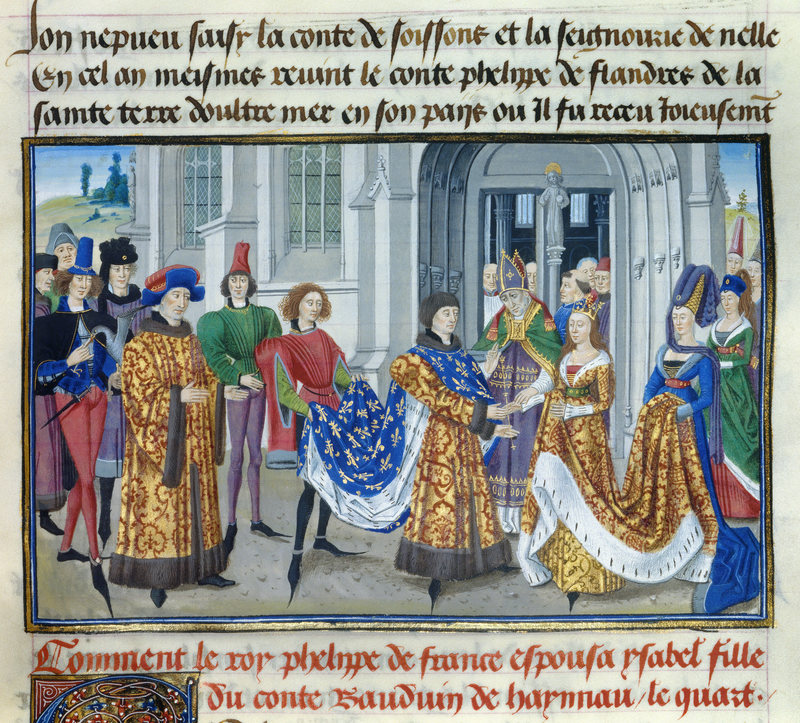 son nepueu saisy la conte de soissons et la seignourie de nelle
En cel an meismes reuint le conte phelippe de flandres de la
sainte terre doultre mer en son pays ou Il fu receu Ioieusemt
Comment le roy phelippe de france espousa ysabel fille
du conte Bauduin de haynnau / le quart.